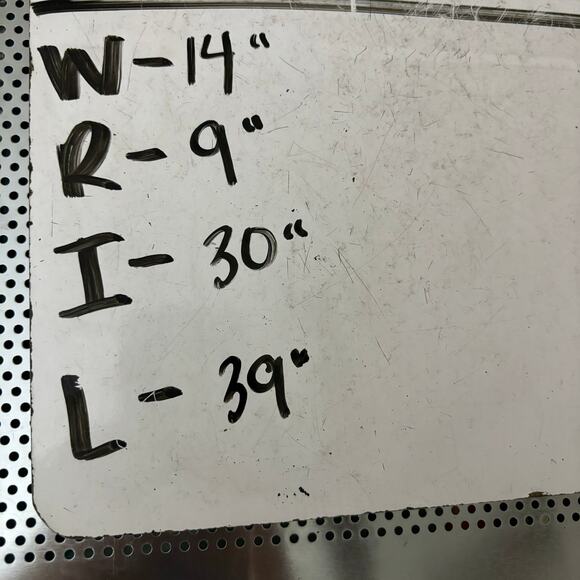 W - 14"
R - 9"
I - 30"
L - 39"